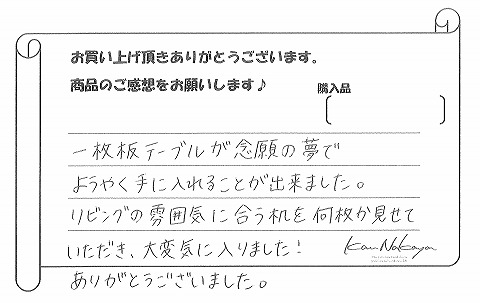 お買い上げ頂きありがとうございます。
商品のご感想をお願いします♪
購入品
一枚板テーブルが念願の夢で
ようやく手に入れることが出来ました。
リビングの雰囲気に合う机を何枚か見せて
いただき、大変気に入りました!
ありがとうございました。